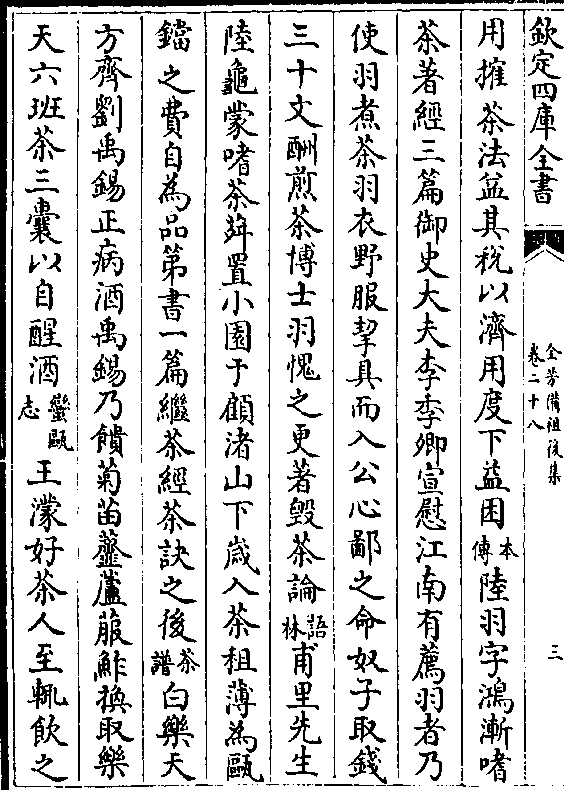 欽定四庫全書
全芳備祖後集
卷二十八
三
用搉茶法益其稅以濟用度下益困本傳陸羽字鴻漸嗜
茶著經三篇御史大夫李季卿宣慰江南有薦羽者乃
使羽煮茶羽衣野服挈具而入公心鄙之命奴子取錢
三十文酬煎茶博士羽愧之更著毀茶論語林甫里先生
陸龜蒙嗜茶荈置小園于顧渚山下歲入茶租薄為甌
䥶之費自為品第書一篇繼茶經茶訣之後茶譜白樂天
方齊劉禹錫正病酒禹錫乃饋菊苗虀蘆菔鮓換取樂
天六班茶三囊以自醒酒蠻甌志王濛好茶人至輒飲之